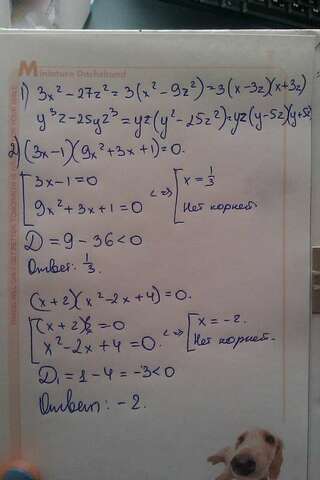 Miniature Dachshund
1) 3x² - 27z² = 3(x² - 9z²) = 3(x - 3z)(x + 3z)
y³z - 25yz³ = yz(y² - 25z²) = yz(y - 5z)(y + 5z)
2) (3x - 1)(9x² + 3x + 1) = 0.
[ 3x - 1 = 0 <=> [ x = 1/3
9x² + 3x + 1 = 0 Нет корней.
D = 9 - 36 < 0
Ответ: 1/3.
(x + 2)(x² - 2x + 4) = 0.
[ (x + 2) = 0 <=> [ x = -2.
x² - 2x + 4 = 0. Нет корней.
D₁ = 1 - 4 = -3 < 0
Ответ: -2.